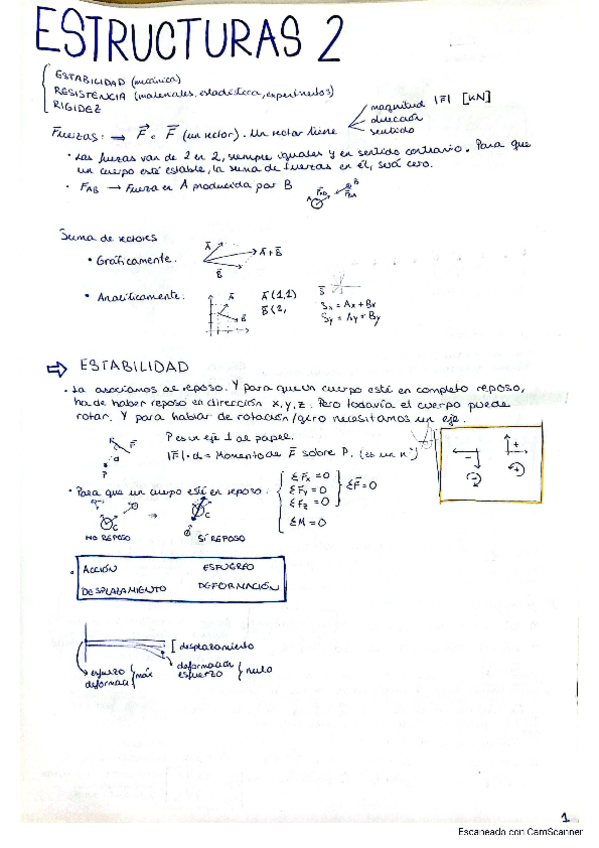 ESTRUCTURAS 2
ESTABILIDAD (mecánica)
RESISTENCIA (materiales, estadística, experimentos)
RIGIDEZ
Fuerzas: → F⃗ o F̄ (un vector). Un vector tiene
magnitud |F̄| [KN]
dirección
sentido
• Las fuerzas van de 2 en 2, siempre iguales y en sentido contrario. Para que
un cuerpo esté estable, la suma de fuerzas en él, será cero.
• F_AB → Fuerza en A producida por B
A F_AB F_BA B
Suma de vectores
• Gráficamente:
Ā Ā+B̄
B̄
• Analíticamente:
Ā B̄
Ā (1,1)
B̄ (2,
S̄
Sx = Ax + Bx
Sy = Ay + By
⇒ ESTABILIDAD
• La asociamos al reposo. Y para que un cuerpo esté en completo reposo,
ha de haber reposo en dirección x, y, z. Pero todavía el cuerpo puede
rotar. Y para hablar de rotación/giro necesitamos un eje.
R F d P
P es un eje ⊥ al papel.
|F̄|·d = Momento de F̄ sobre P. (es un nº)
- +
• Para que un cuerpo esté en reposo:
ΣFx = 0
ΣFy = 0
ΣFz = 0
ΣF̄ = 0
ΣM = 0
C C
NO REPOSO → SÍ REPOSO
• ACCIÓN ESFUERZO
DESPLAZAMIENTO DEFORMACIÓN
[desplazamiento
esfuerzo
deformac } máx
deformación
esfuerzo } nulo
1
Escaneado con CamScanner